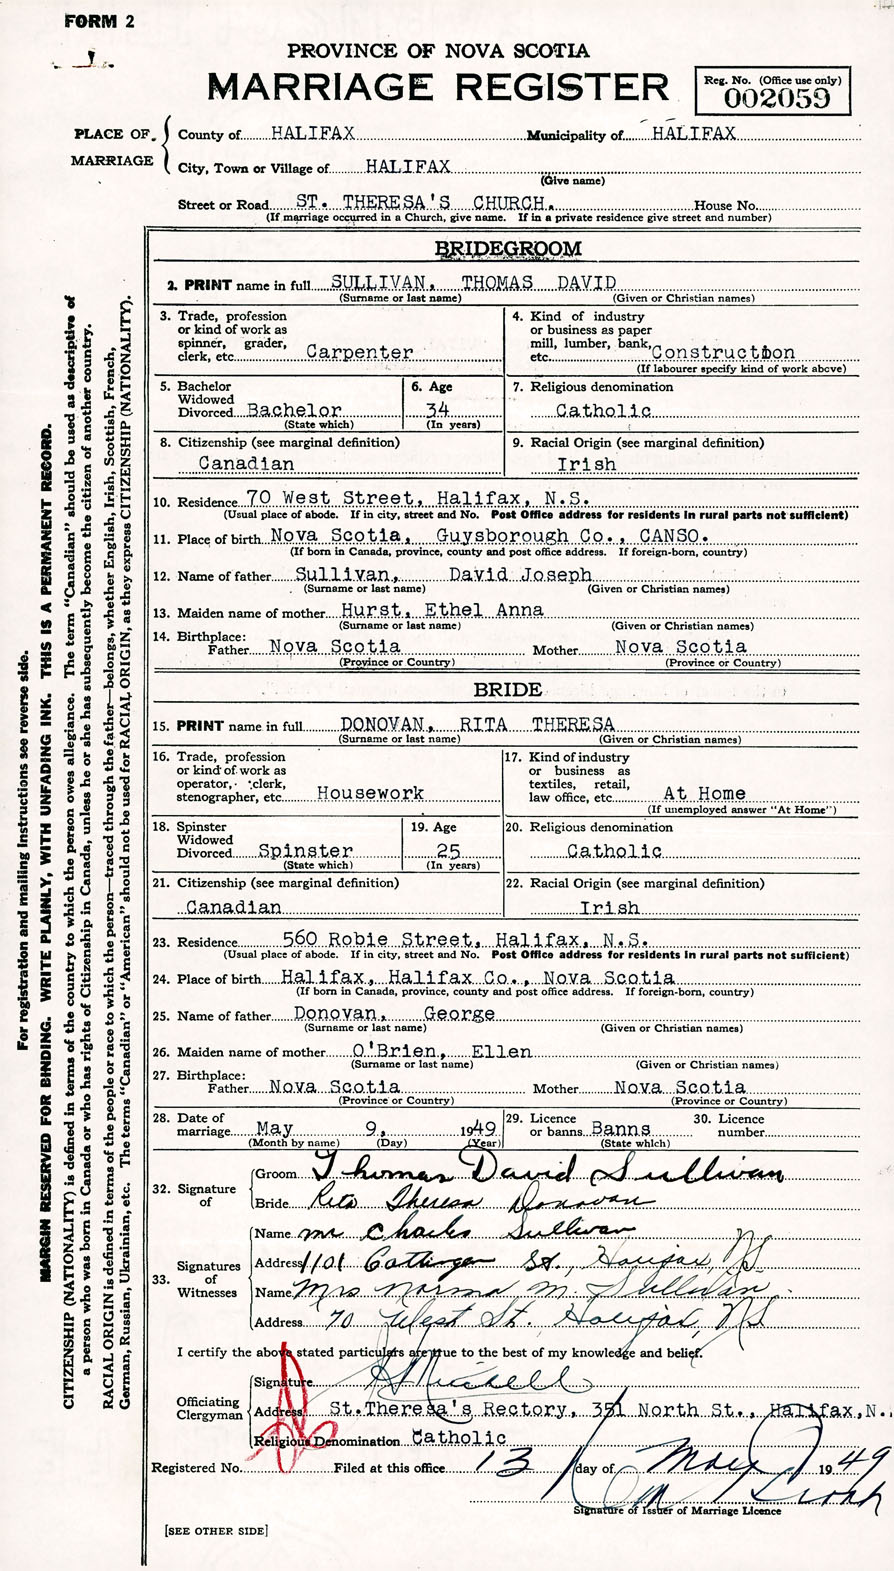 FORM 2
PROVINCE OF NOVA SCOTIA
MARRIAGE REGISTER
Reg. No. (Office use only)
002059
PLACE OF MARRIAGE
County of HALIFAX Municipality of HALIFAX
City, Town or Village of HALIFAX
(Give name)
Street or Road ST. THERESA'S CHURCH. House No.
(If marriage occurred in a Church, give name. If in a private residence give street and number)
BRIDEGROOM
2. PRINT name in full SULLIVAN, THOMAS DAVID
(Surname or last name) (Given or Christian names)
3. Trade, profession
or kind of work as
spinner, grader,
clerk, etc. Carpenter
4. Kind of industry
or business as paper
mill, lumber, bank,
etc. Construction
(If labourer specify kind of work above)
5. Bachelor
Widowed
Divorced Bachelor
(State which)
6. Age
34
(In years)
7. Religious denomination
Catholic
8. Citizenship (see marginal definition)
Canadian
9. Racial Origin (see marginal definition)
Irish
10. Residence 70 West Street, Halifax, N.S.
(Usual place of abode. If in city, street and No. Post Office address for residents in rural parts not sufficient)
11. Place of birth Nova Scotia, Guysborough Co., CANSO.
(If born in Canada, province, county and post office address. If foreign-born, country)
12. Name of father Sullivan, David Joseph
(Surname or last name) (Given or Christian names)
13. Maiden name of mother Hurst, Ethel Anna
(Surname or last name) (Given or Christian names)
14. Birthplace:
Father Nova Scotia Mother Nova Scotia
(Province or Country) (Province or Country)
BRIDE
15. PRINT name in full DONOVAN, RITA THERESA
(Surname or last name) (Given or Christian names)
16. Trade, profession
or kind of work as
operator, clerk,
stenographer, etc. Housework
17. Kind of industry
or business as
textiles, retail,
law office, etc. At Home
(If unemployed answer "At Home")
18. Spinster
Widowed
Divorced Spinster
(State which)
19. Age
25
(In years)
20. Religious denomination
Catholic
21. Citizenship (see marginal definition)
Canadian
22. Racial Origin (see marginal definition)
Irish
23. Residence 560 Robie Street, Halifax, N.S.
(Usual place of abode. If in city, street and No. Post Office address for residents in rural parts not sufficient)
24. Place of birth Halifax, Halifax Co., Nova Scotia
(If born in Canada, province, county and post office address. If foreign-born, country)
25. Name of father Donovan, George
(Surname or last name) (Given or Christian names)
26. Maiden name of mother O'Brien, Ellen
(Surname or last name) (Given or Christian names)
27. Birthplace:
Father Nova Scotia Mother Nova Scotia
(Province or Country) (Province or Country)
28. Date of
marriage May 9, 1949
(Month by name) (Day) (Year)
29. Licence
or banns Banns
(State which)
30. Licence
number
32. Signature of
Groom Thomas David Sullivan
Bride Rita Theresa Donovan
33. Signatures of Witnesses
Name Mr Charles Sullivan
Address 1101 Gottingen St., Halifax, N.S.
Name Mrs. Norma M. Sullivan
Address 70 West St. Halifax, N.S.
I certify the above stated particulars are true to the best of my knowledge and belief.
Officiating Clergyman
Signature
Address St.Theresa's Rectory, 351 North St., Halifax,N.
Religious Denomination Catholic
Registered No. Filed at this office 13 day of May 1949
Signature of Issuer of Marriage Licence
[SEE OTHER SIDE]
For registration and mailing instructions see reverse side.
MARGIN RESERVED FOR BINDING. WRITE PLAINLY, WITH UNFADING INK. THIS IS A PERMANENT RECORD.
CITIZENSHIP (NATIONALITY) is defined in terms of the country to which the person owes allegiance. The term "Canadian" should be used as descriptive of
a person who was born in Canada or who has rights of Citizenship in Canada, unless he or she has subsequently become the citizen of another country.
RACIAL ORIGIN is defined in terms of the people or race to which the person—traced through the father—belongs, whether English, Irish, Scottish, French,
German, Russian, Ukrainian, etc. The terms "Canadian" or "American" should not be used for RACIAL ORIGIN, as they express CITIZENSHIP (NATIONALITY).